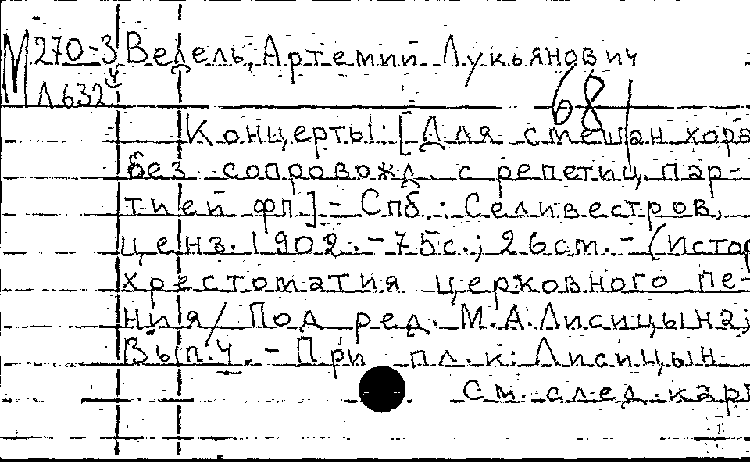 М 270-3 Ведель, Артемий Лукьянович
Л632 ч
68
Концерты [Для смешан хора
без сопровожд. с репетиц. пар-
тией фп.] - Спб.: Селивестров,
ценз. 1902. - 75с.; 26см. - (Истор
хрестоматия церковного пе-
ния / Под ред. М.А.Лисицына;
Вып.4. - При пл. к: Лисицын
См. след. кар